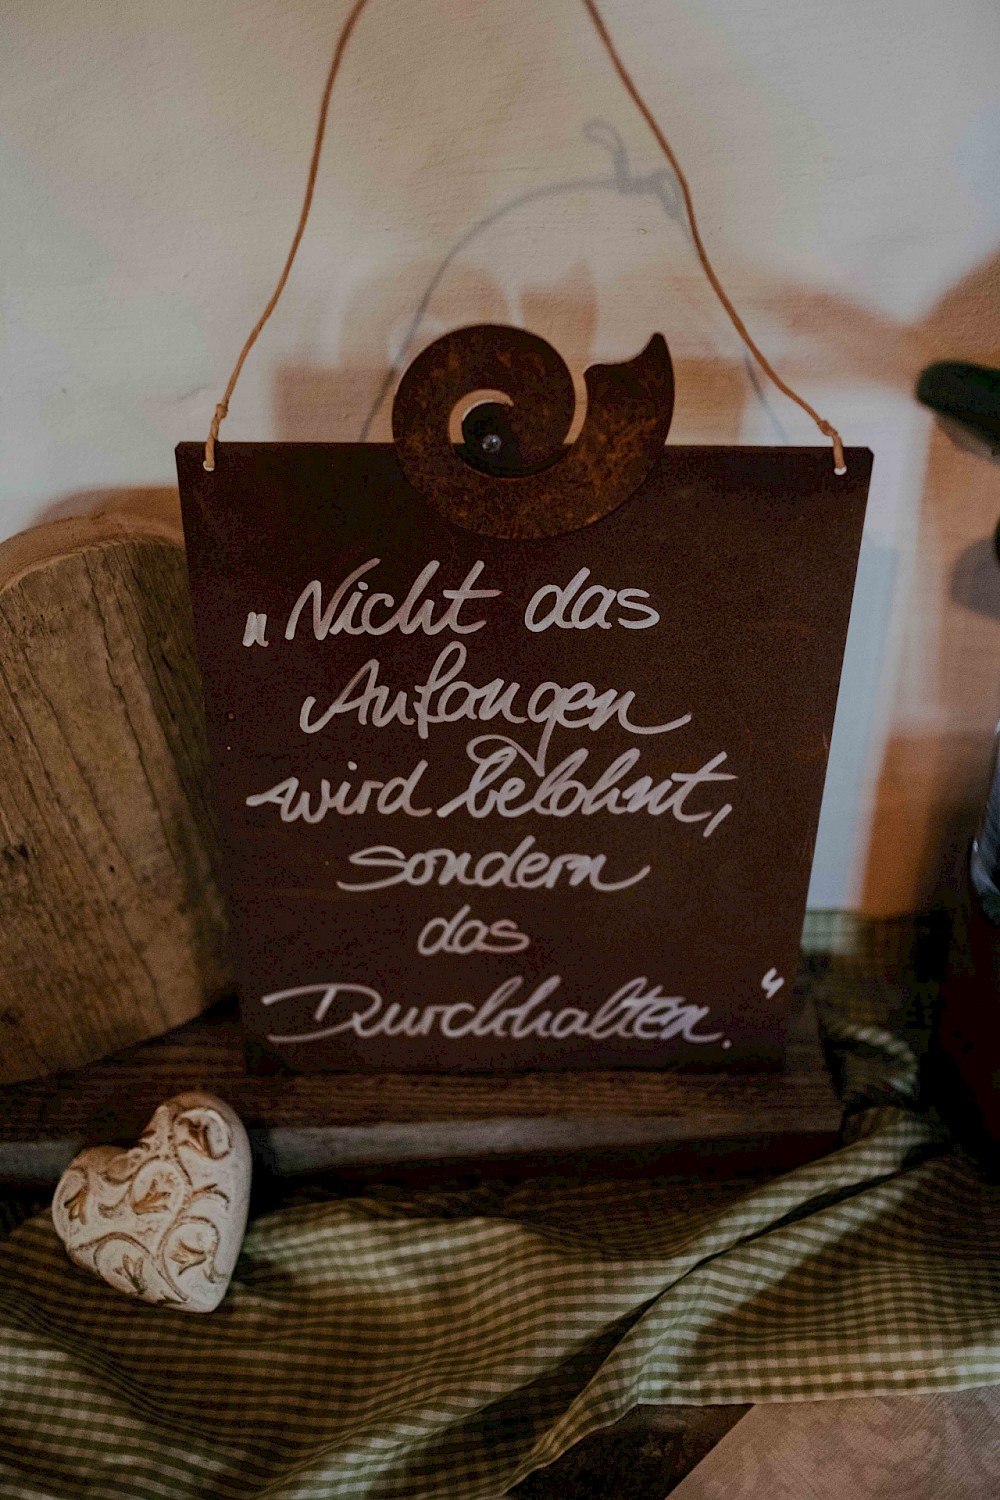 „Nicht das
Anfangen
wird belohnt,
sondern
das
Durchhalten.“